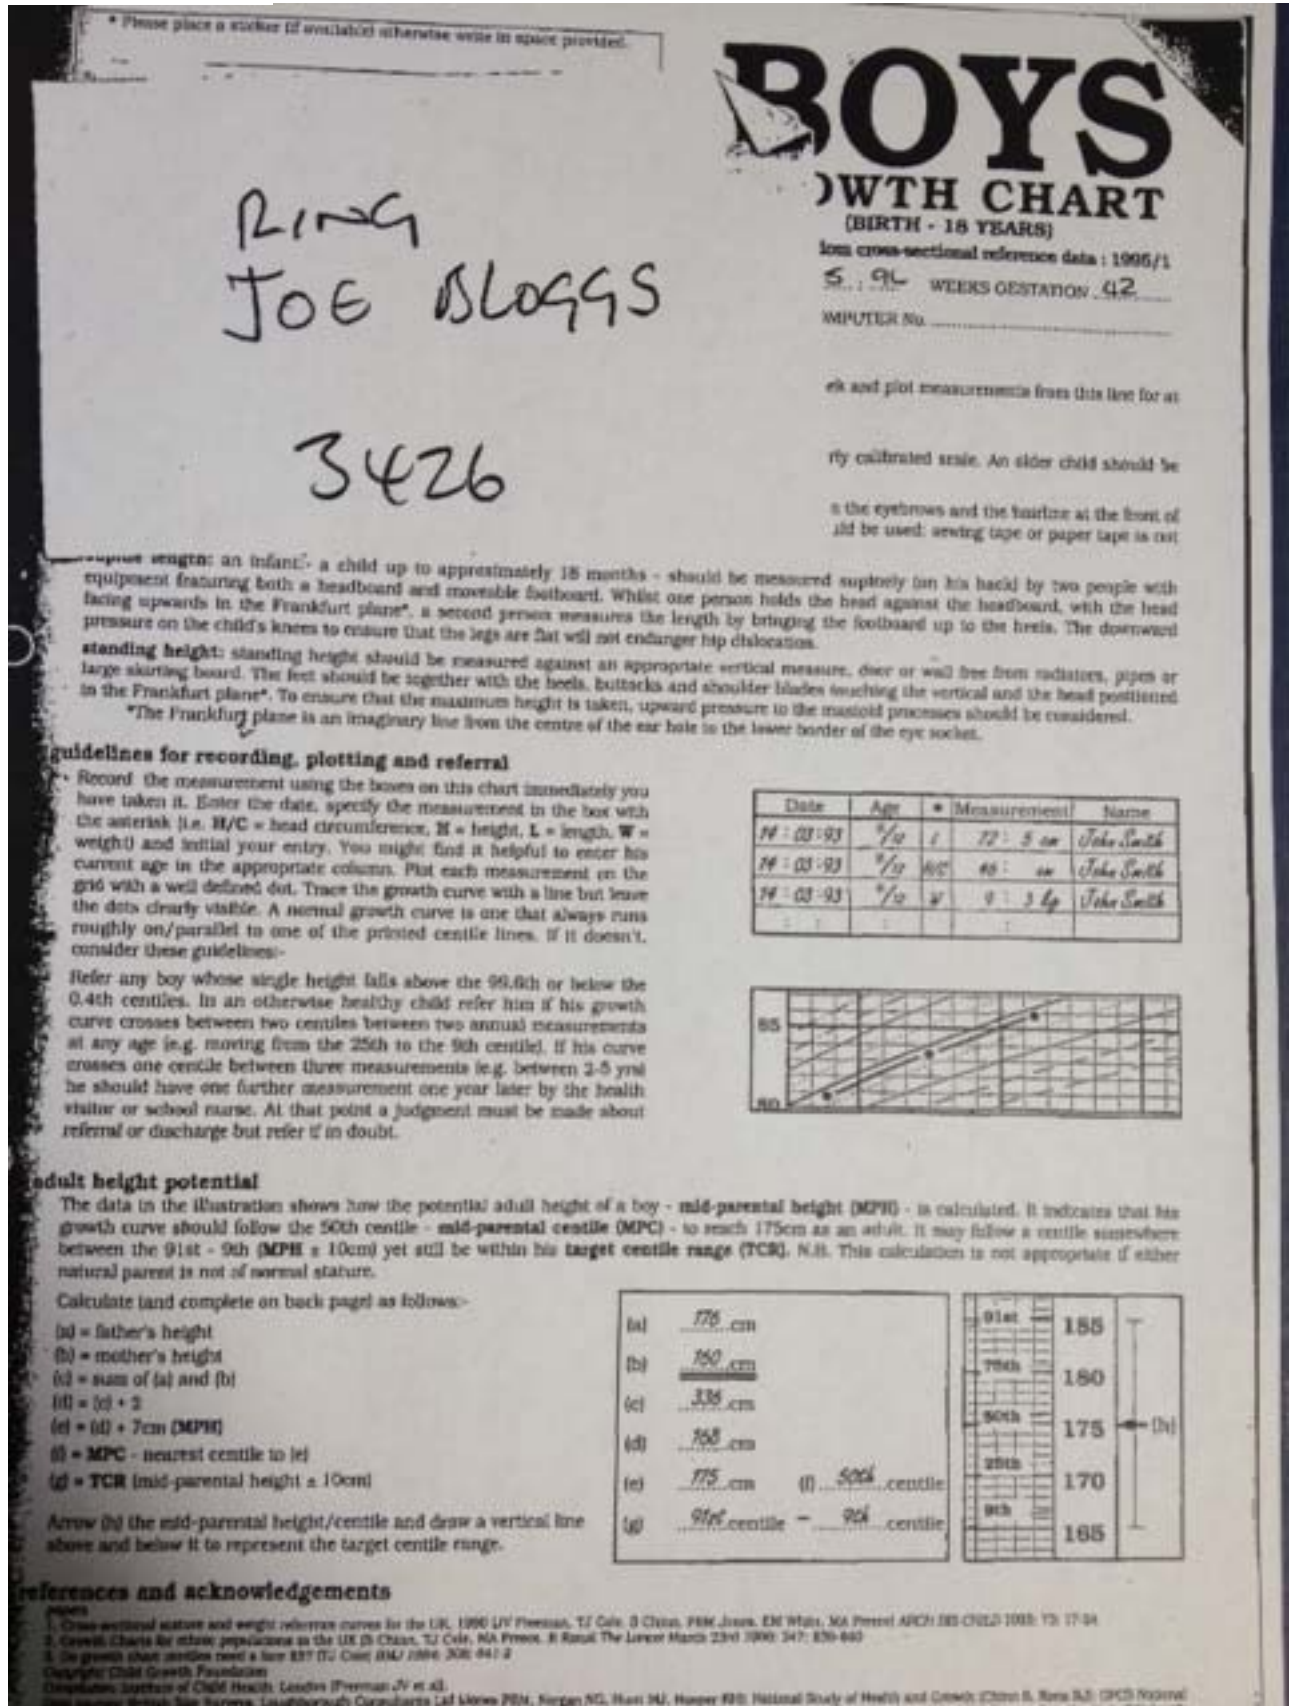 * Please place a sticker (if available) otherwise write in space provided.
BOYS
OWTH CHART
(BIRTH - 18 YEARS)
cross-sectional reference data : 1995/1
WEEKS GESTATION 42
MPUTER No.
RING
JOE BLOGGS
3426
ek and plot measurements from this line for at
rly calibrated scale. An older child should be
n the eyebrows and the hairline at the front of
uld be used: sewing tape or paper tape is not
length: an infant - a child up to approximately 18 months - should be measured supinely (on his back) by two people with
equipment featuring both a headboard and moveable footboard. Whilst one person holds the head against the headboard, with the head
facing upwards in the Frankfurt plane*, a second person measures the length by bringing the footboard up to the heels. The downward
pressure on the child's knees to ensure that the legs are flat will not endanger hip dislocation.
standing height: standing height should be measured against an appropriate vertical measure, door or wall free from radiators, pipes or
large skirting board. The feet should be together with the heels, buttocks and shoulder blades touching the vertical and the head positioned
in the Frankfurt plane*. To ensure that the maximum height is taken, upward pressure to the mastoid processes should be considered.
*The Frankfurt plane is an imaginary line from the centre of the ear hole to the lower border of the eye socket.
guidelines for recording, plotting and referral
Record the measurement using the boxes on this chart immediately you
have taken it. Enter the date, specify the measurement in the box with
the asterisk (i.e. H/C = head circumference, H = height, L = length, W =
weight) and initial your entry. You might find it helpful to enter his
current age in the appropriate column. Plot each measurement on the
grid with a well defined dot. Trace the growth curve with a line but leave
the dots clearly visible. A normal growth curve is one that always runs
roughly on/parallel to one of the printed centile lines. If it doesn't,
consider these guidelines:-
Refer any boy whose single height falls above the 99.6th or below the
0.4th centiles. In an otherwise healthy child refer him if his growth
curve crosses between two centiles between two annual measurements
at any age (e.g. moving from the 25th to the 9th centile). If his curve
crosses one centile between three measurements (e.g. between 2-5 yrs)
he should have one further measurement one year later by the health
visitor or school nurse. At that point a judgment must be made about
referral or discharge but refer if in doubt.
Date Age * Measurement Name
14 : 03 :93 9/12 L 72 : 5 cm John Smith
14 : 03 :93 9/12 H/C 46 : cm John Smith
14 : 03 :93 9/12 W 9 : 3 kg John Smith
85
80
adult height potential
The data in the illustration shows how the potential adult height of a boy - mid-parental height (MPH) - is calculated. It indicates that his
growth curve should follow the 50th centile - mid-parental centile (MPC) - to reach 175cm as an adult. It may follow a centile somewhere
between the 91st - 9th (MPH ± 10cm) yet still be within his target centile range (TCR). N.B. This calculation is not appropriate if either
natural parent is not of normal stature.
Calculate (and complete on back page) as follows:-
(a) = father's height
(b) = mother's height
(c) = sum of (a) and (b)
(d) = (c) ÷ 2
(e) = (d) + 7cm (MPH)
(f) = MPC - nearest centile to (e)
(g) = TCR (mid-parental height ± 10cm)
Arrow (h) the mid-parental height/centile and draw a vertical line
above and below it to represent the target centile range.
(a) 176 cm
(b) 160 cm
(c) 336 cm
(d) 168 cm
(e) 175 cm (f) 50th centile
(g) 91st centile - 9th centile
91st 185
75th 180
50th 175 (h)
25th 170
9th 165
references and acknowledgements
papers
1. Cross-sectional stature and weight reference curves for the UK, 1990 (JV Freeman, TJ Cole, S Chinn, PRM Jones, EM White, MA Preece) ARCH DIS CHILD 1995: 73: 17-24
2. Growth Charts for ethnic populations in the UK (S Chinn, TJ Cole, MA Preece, R Rona) The Lancet March 23rd 1996: 347: 839-840
3. Do growth chart centiles need a face lift? (TJ Cole) BMJ 1994: 308: 641-2
Copyright: Child Growth Foundation
Institute of Child Health, London (Freeman JV et al).